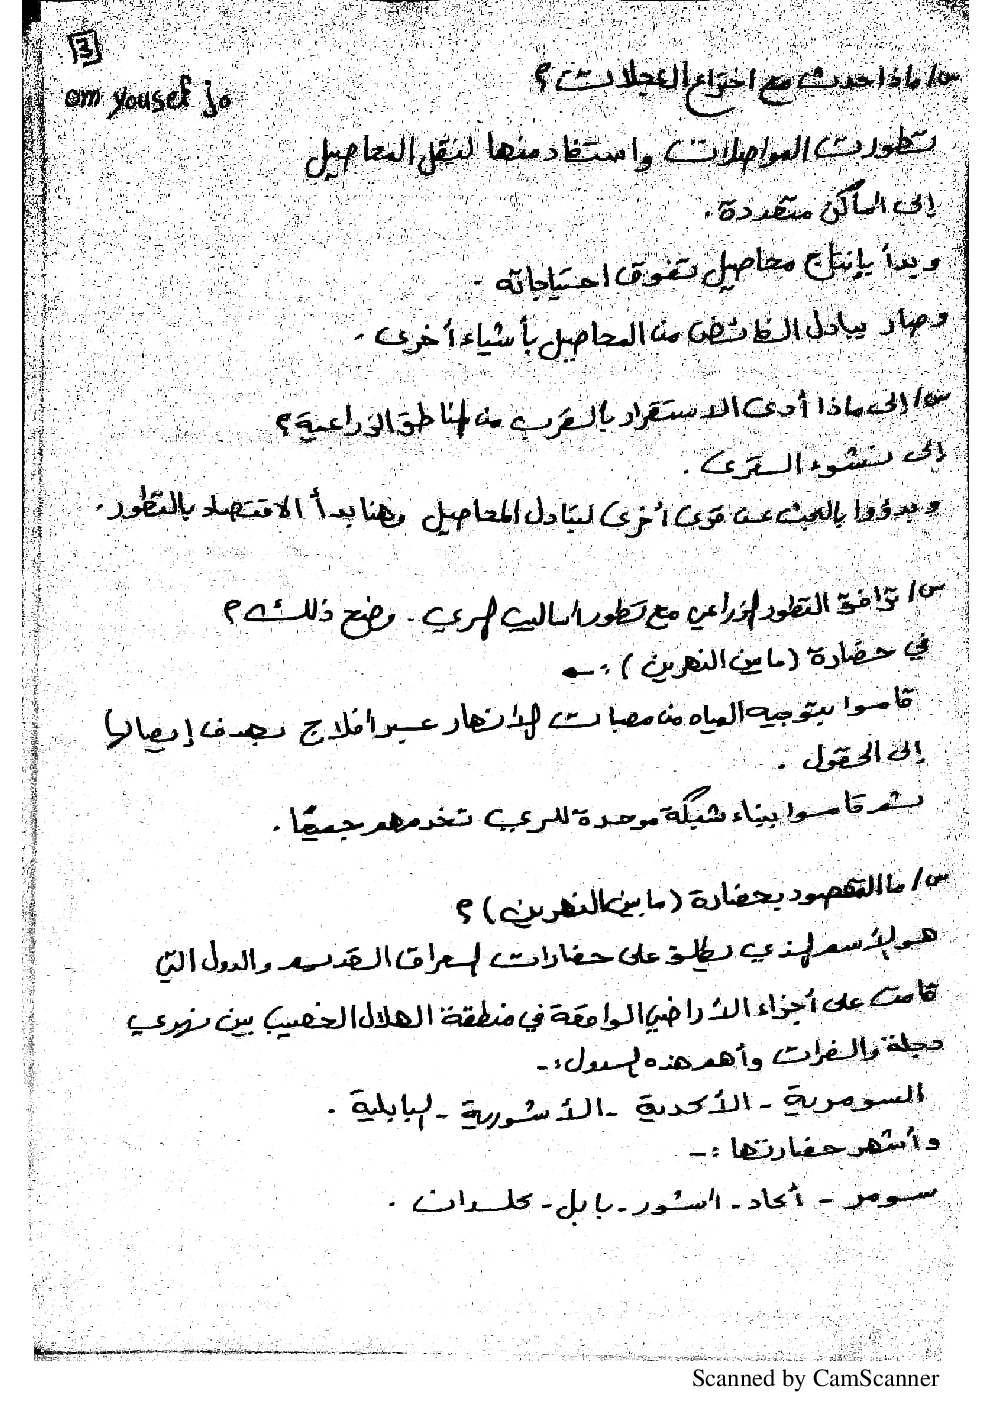 3
om yousef jo
س/ ماذا حدث مع اختراع العجلات؟
تطورت المواصلات واستفاد منها لنقل المحاصيل
إلى أماكن متعددة.
وبدأ بإنتاج محاصيل تفوق احتياجاته.
وصار يبادل الفائض من المحاصيل بأشياء أخرى.
س/ إلى ماذا أدى الاستقرار بالقرب من المناطق الزراعية؟
إلى نشوء القرى.
وبدؤوا بالبحث عن قرى أخرى لتبادل المحاصيل وهنا بدأ الاقتصاد بالتطور.
س/ ترافق التطور الزراعي مع تطور أساليب الري. وضح ذلك؟
في حضارة (ما بين النهرين):-
قاموا بتوجيه المياه من مصبات الأنهار عبر أفلاج بهدف إيصالها
إلى الحقول.
ثم قاموا ببناء شبكة موحدة للري تخدمهم جميعًا.
س/ ما المقصود بحضارة (ما بين النهرين)؟
هو الأسم الذي يطلق على حضارات العراق القديمه والدول التي
قامت على أجزاء الأراضي الواقعة في منطقة الهلال الخصيب بين نهري
دجلة والفرات وأهم هذه الدول:-
السومرية - الأكدية - الأشورية - البابلية.
وأشهر حضارتها:-
سومر - أكاد - اشور - بابل - كلدان.
Scanned by CamScanner